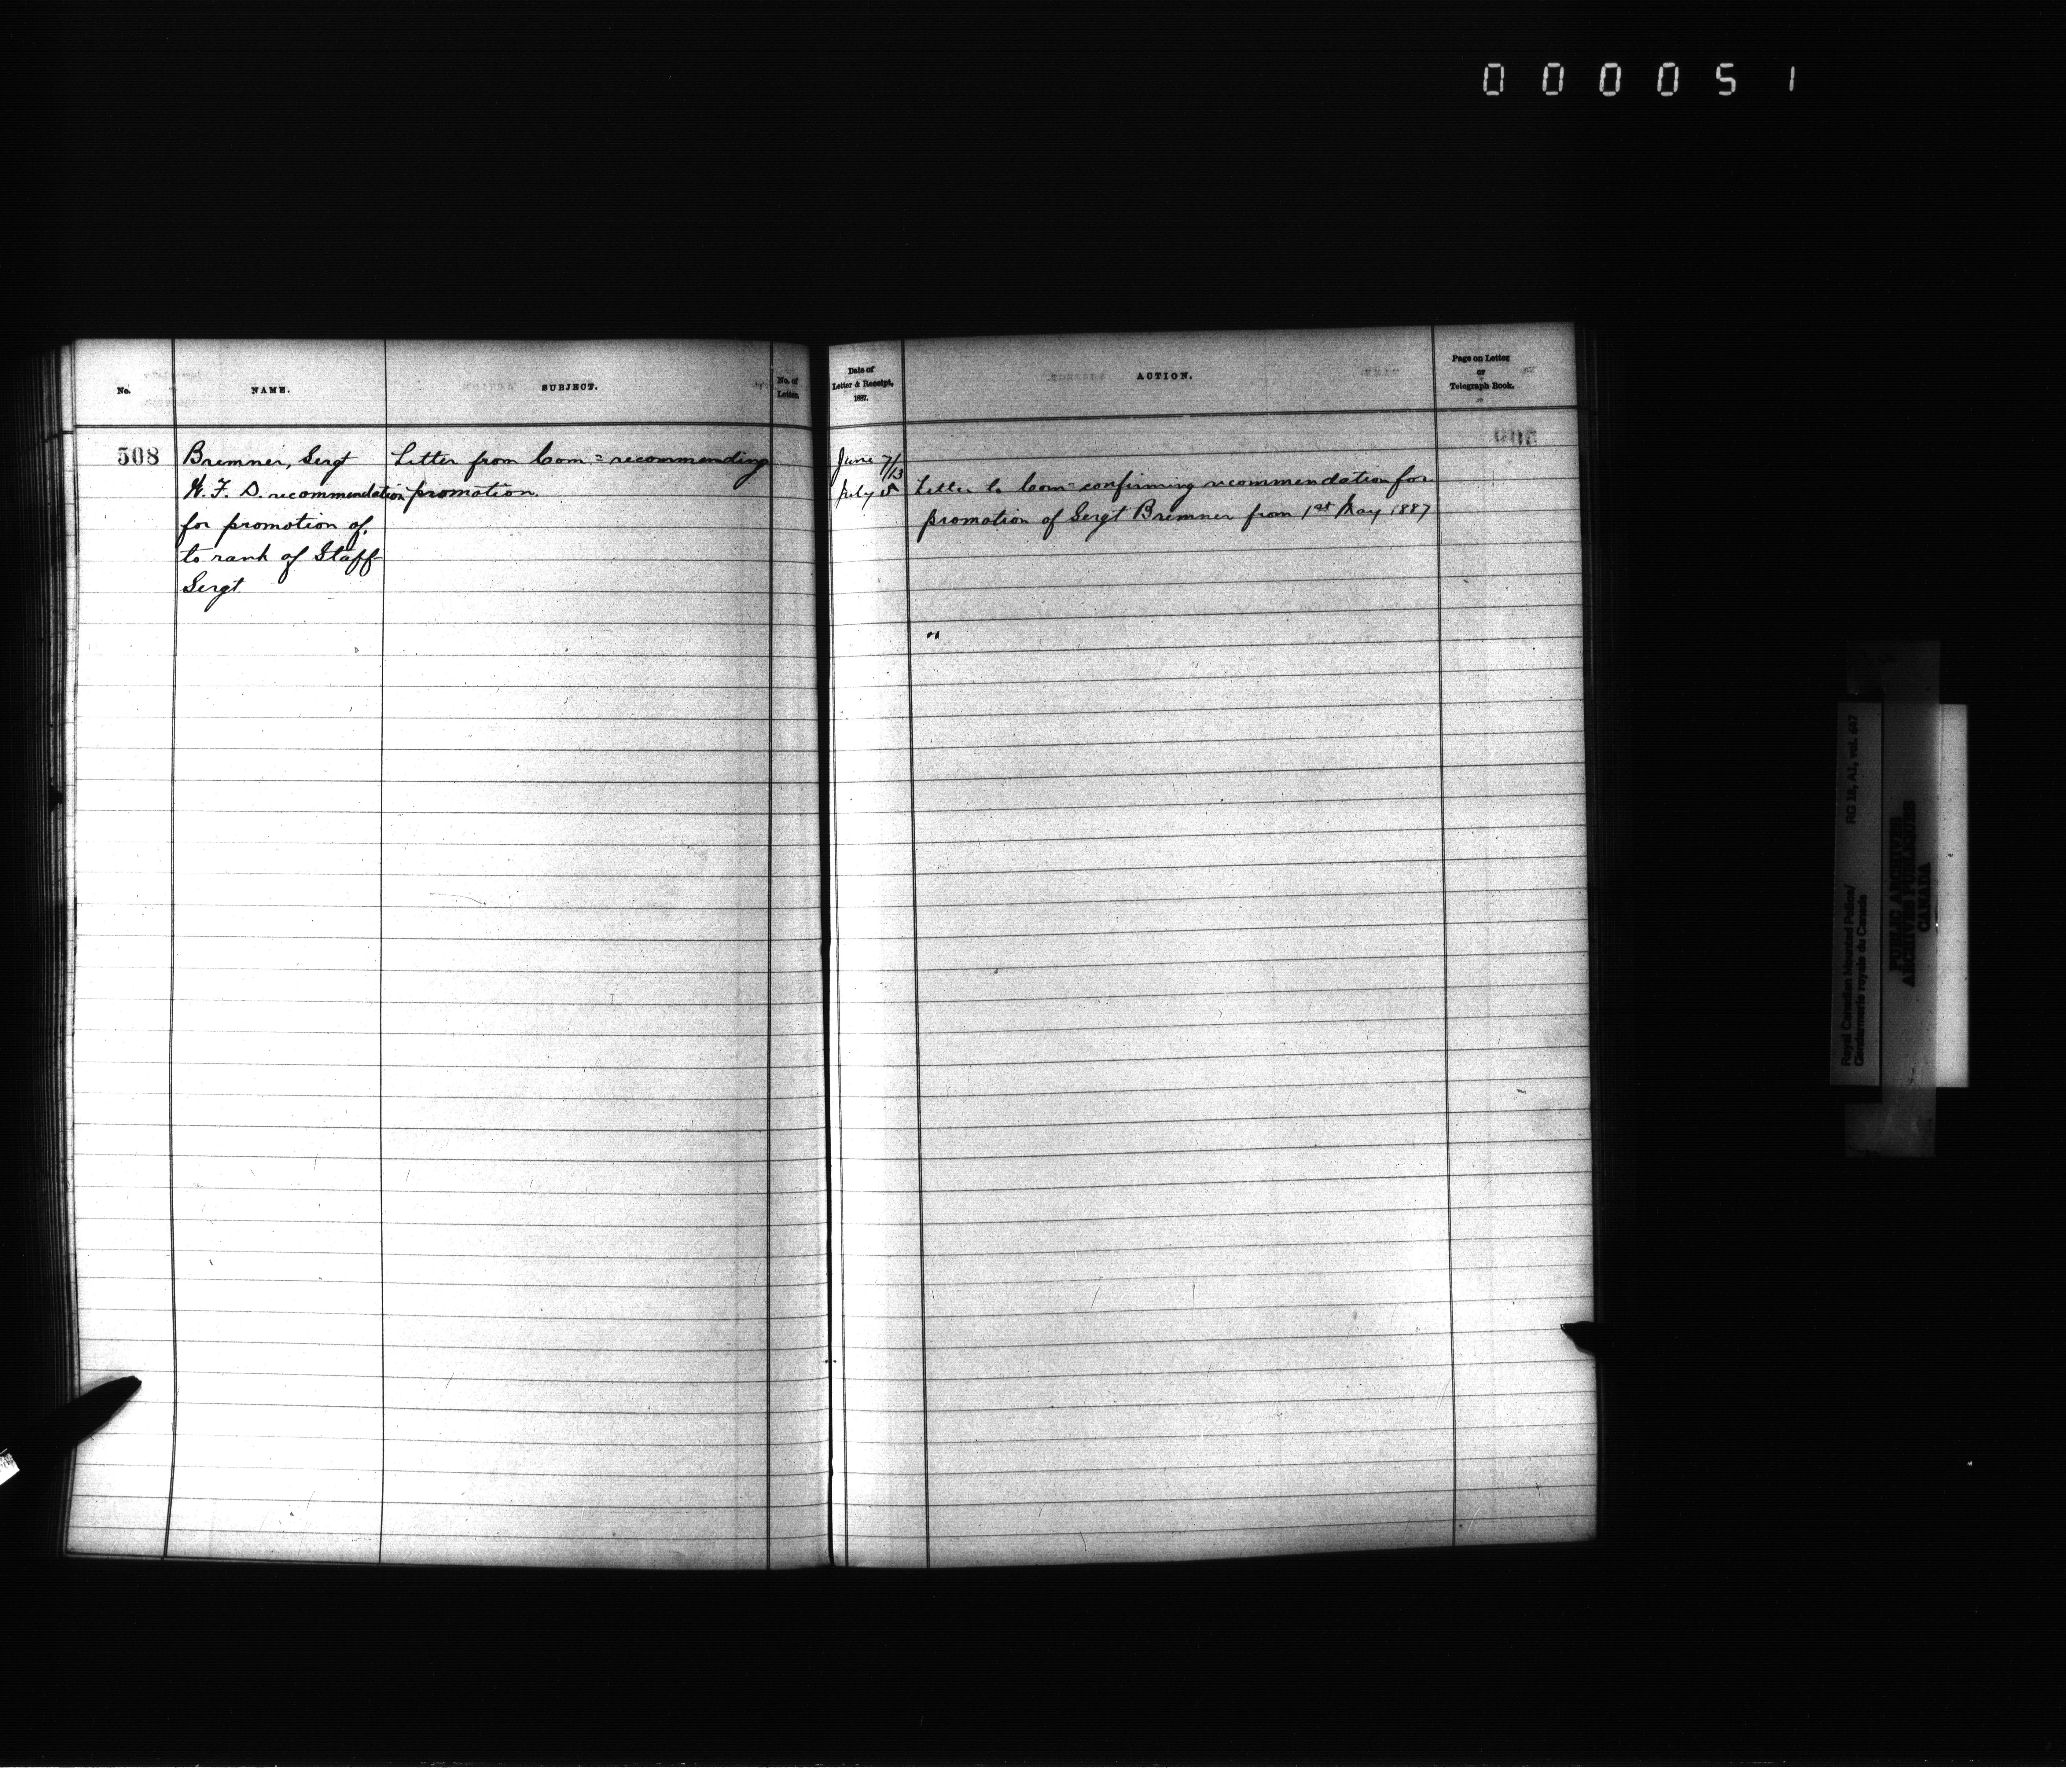 000051
No.
NAME.
SUBJECT.
No. of
Letter.
508
Bremner, Sergt
W. F. D. recommendation
for promotion of,
to rank of Staff
Sergt.
Letter from Com= recommending
promotion.
Date of
Letter & Receipt,
1887.
ACTION.
Page on Letter
or
Telegraph Book.
June 7/13
July 5
Letter to Com= confirming recommendation for
promotion of Sergt Bremner from 1st May 1887
"
Royal Canadian Mounted Police/
Gendarmerie royale du Canada
RG 18, A1, vol. 647
PUBLIC ARCHIVES
ARCHIVES PUBLIQUES
CANADA